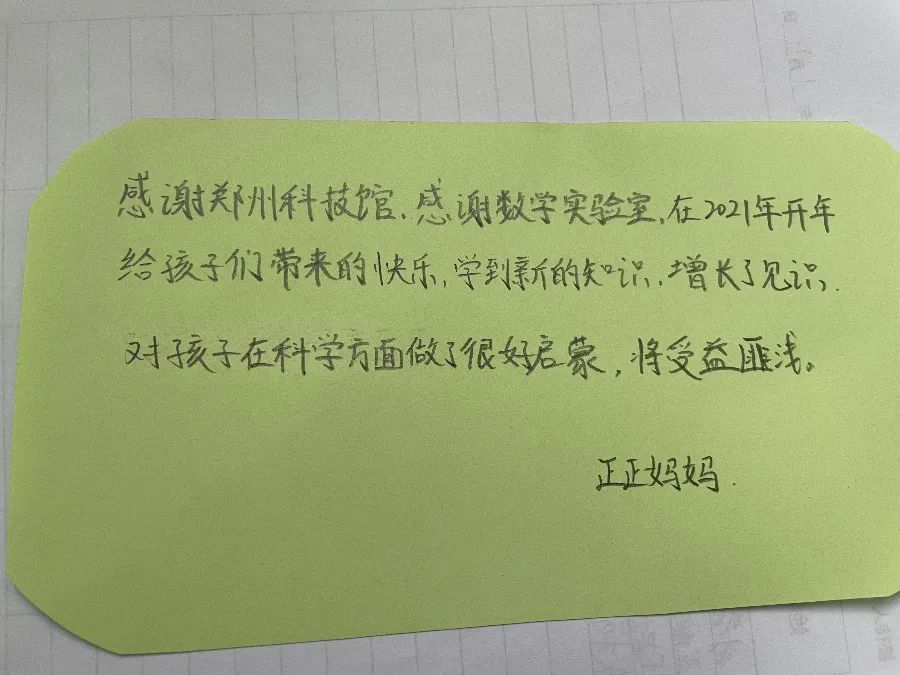 感谢郑州科技馆.感谢数学实验室,在2021年开年
给孩子们带来的快乐,学到新的知识,增长了见识,
对孩子在科学方面做了很好启蒙,将受益匪浅。
正正妈妈.